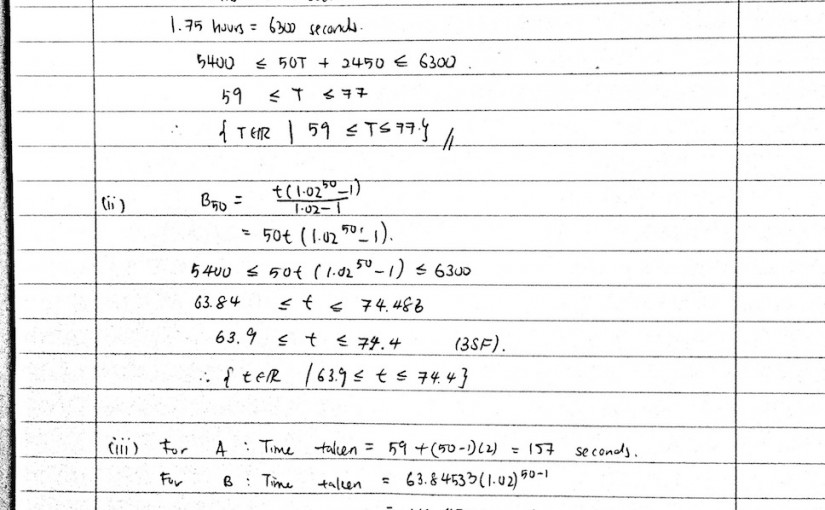 1.75 hours = 6300 seconds.
5400 ≤ 50T + 2450 ≤ 6300.
59 ≤ T ≤ 77
∴ {T∈ℝ | 59 ≤ T ≤ 77.} //
(ii) B₅₀ = t(1.02⁵⁰-1)/1.02-1
= 50t (1.02⁵⁰-1).
5400 ≤ 50t (1.02⁵⁰-1) ≤ 6300
63.84 ≤ t ≤ 74.486
63.9 ≤ t ≤ 74.4 (3SF).
∴ {t∈ℝ | 63.9 ≤ t ≤ 74.4}
(iii) For A : Time taken = 59 + (50-1)(2) = 157 seconds.
For B : Time taken = 63.84533(1.02)⁵⁰⁻¹